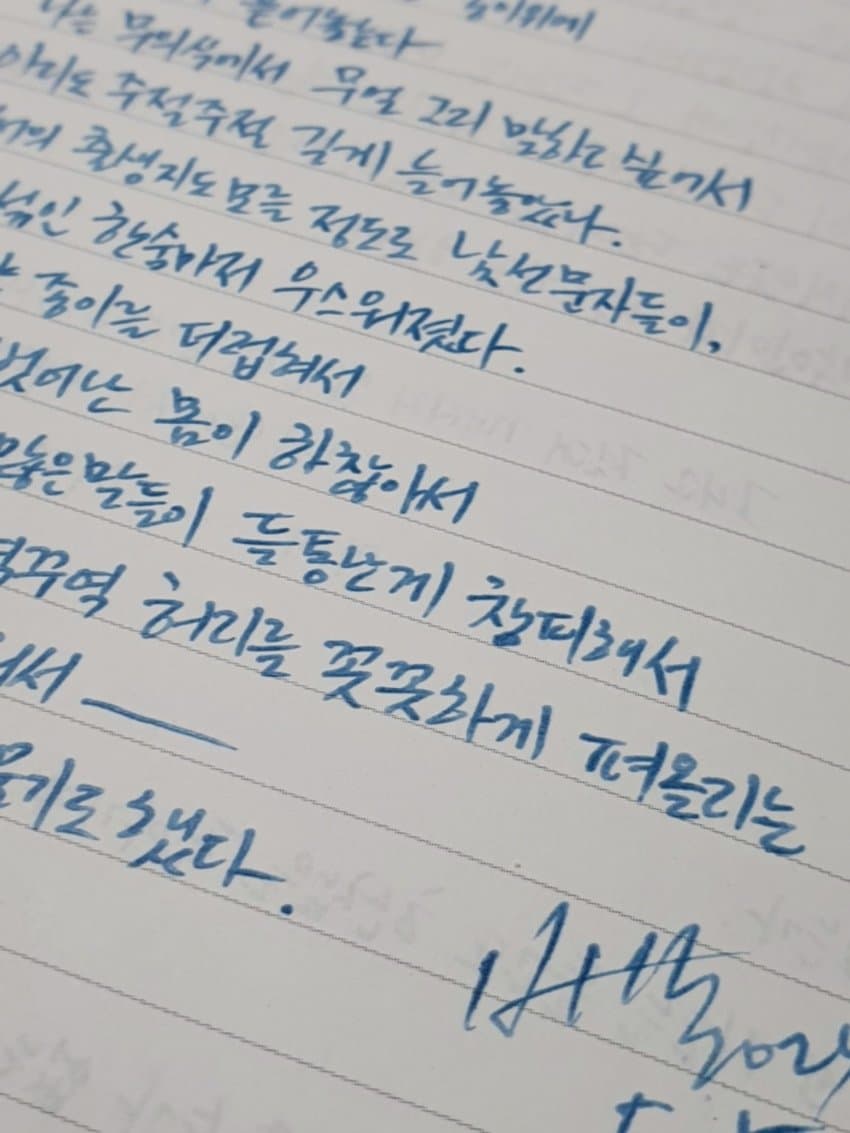 늘어놓는다 종이위에
나는 무의식에서 무얼 그리 말하고 싶어서
주절주절 길게 늘어놓았나.
출생지도 모를 정도로 낯선 문자들이,
섞인 한숨마저 우스워졌다.
종이를 더럽혀서
벗어난 몸이 하찮아서
많은 말들이 들통난게 창피해서
꾸역 허리를 꼿꼿하게 펴올리는
했다.